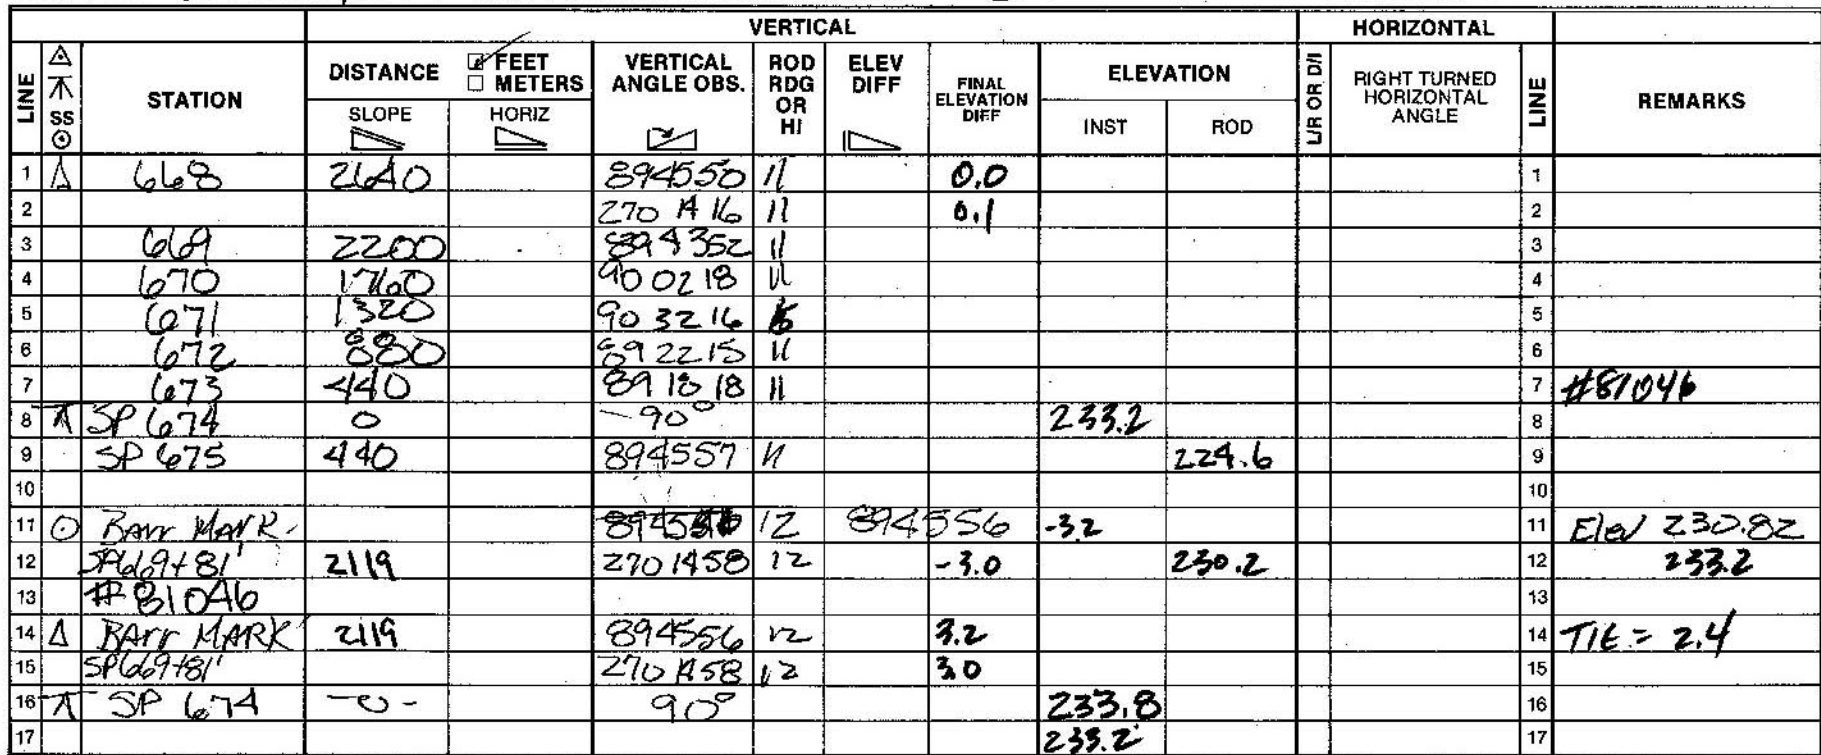 VERTICAL HORIZONTAL
LINE SS STATION DISTANCE FEET METERS SLOPE HORIZ VERTICAL ANGLE OBS. ROD RDG OR HI ELEV DIFF FINAL ELEVATION DIFF ELEVATION INST ROD L/R OR D/I RIGHT TURNED HORIZONTAL ANGLE LINE REMARKS
1 668 2640 894550 11 0.0 1
2 270 14 16 11 0.1 2
3 669 2200 894352 11 3
4 670 1760 90 02 18 11 4
5 671 1320 90 32 16 5
6 672 880 89 22 15 11 6
7 673 440 89 18 18 11 7 #81046
8 SP 674 0 -90° 233.2 8
9 SP 675 440 894557 11 224.6 9
10 10
11 BArr MARK 12 894556 -32 11 Elev 230.82
12 SP669+81' 2119 270 1458 12 -3.0 230.2 12 233.2
13 #81046 13
14 BArr MARK 2119 894556 12 3.2 14 TIE = 2.4
15 SP669+81' 270 1458 12 3.0 15
16 SP 674 -0- 90° 233.8 16
17 233.2 17